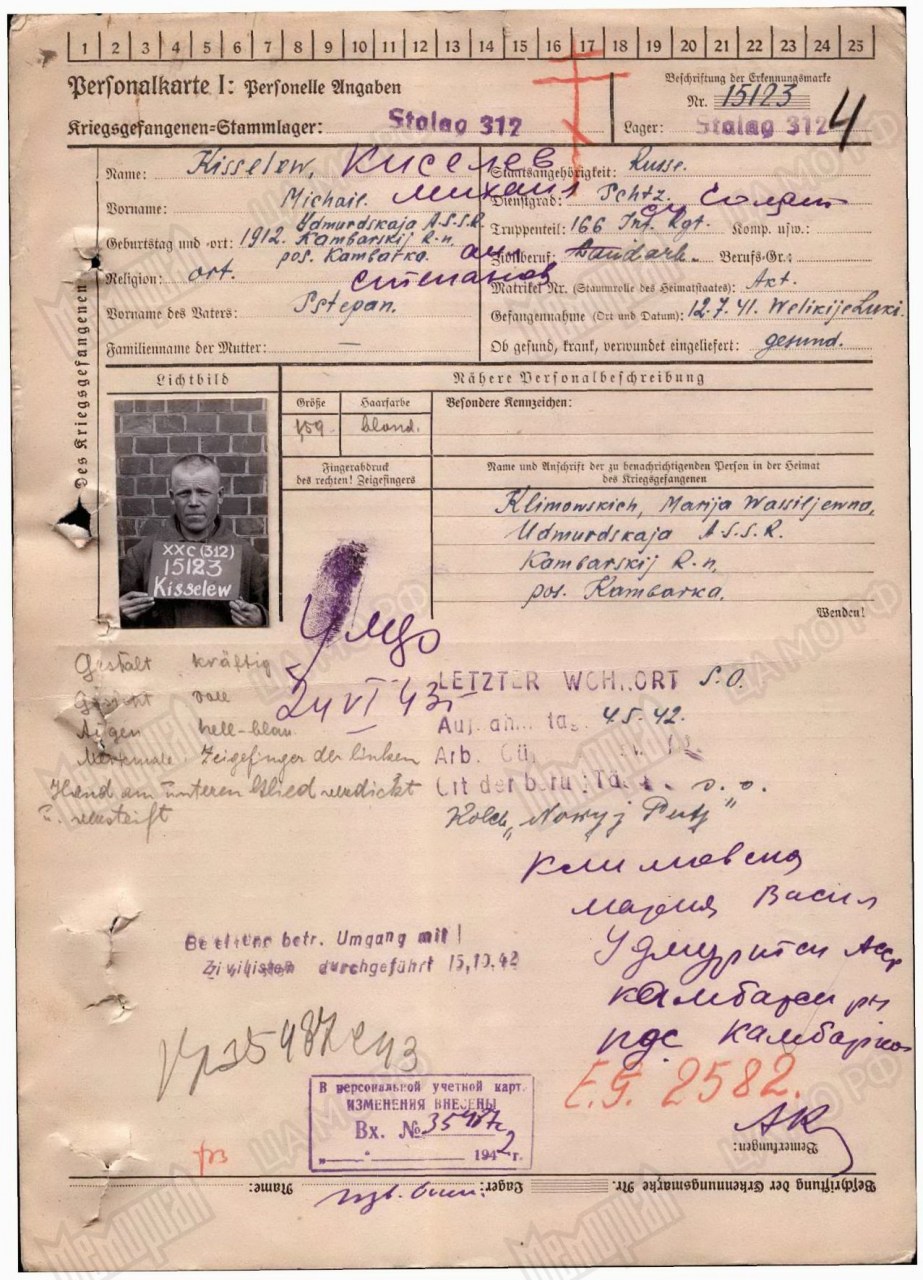 1 2 3 4 5 6 7 8 9 10 11 12 13 14 15 16 17 18 19 20 21 22 23 24 25
Personalkarte I: Personelle Angaben
Beschriftung der Erkennungsmarke
Nr. 15123
Kriegsgefangenen-Stammlager: Stalag 312
Lager: Stalag 312
4
Des Kriegsgefangenen
Name: Kisselew, Киселев
Vorname: Michail. Михаил
Geburtstag und -ort: 1912. Udmurdskaja A.S.S.R.
Kambarskij R-n.
pos. Kambarka.
Religion: ort.
Vorname des Vaters: Pstepan. степанов
Familienname der Mutter: —
Staatsangehörigkeit: Russe.
Dienstgrad:
Truppenteil: 166 Inf. Rgt. Komp. usw.:
Zivilberuf: Berufs-Gr.:
Matrikel Nr. (Stammrolle des Heimatstaates): Akt.
Gefangennahme (Ort und Datum): 12.7.41. Welikije Luki.
Ob gesund, krank, verwundet eingeliefert: gesund.
Lichtbild
Nähere Personalbeschreibung
Größe
Haarfarbe
Besondere Kennzeichen:
blond.
Fingerabdruck
des rechten! Zeigefingers
Name und Anschrift der zu benachrichtigenden Person in der Heimat
des Kriegsgefangenen
Klimowskich, Marija Wassiljewna,
Udmurdskaja A.S.S.R.
Kambarskij R-n.
pos. Kambarka.
Wenden!
XXC (312)
15123
Kisselew
24 VI 43
Gestalt kräftig
Gesicht voll
Augen hell-blau
Merkmale: Zeigefinger der linken
Hand am unteren Glied verdickt
u. versteift
LETZTER WOHNORT S.O.
4.5.42.
Arb.
Ort der s.o.
Kolch. „Nowyj Putj"
Мария Васил
Камбарски рн
Камбарка
betr. Umgang mit
Zivilisten durchgeführt 15.10.42
В персональной учетной карт.
ИЗМЕНЕНИЯ ВНЕСЕНЫ
Вх. №
194 г.
E.G. 2582.
АК
Bemerkungen:
Beschriftung der Erkennungsmarke Nr. Lager: Name:
Мемориал
ЦАМО РФ